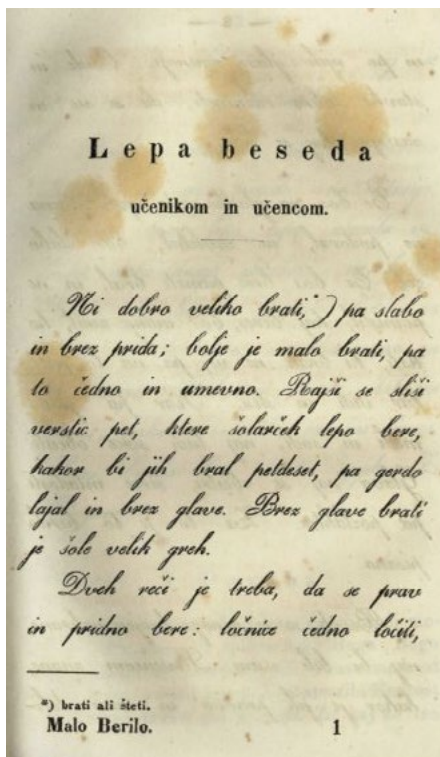 Lepa beseda
učenikom in učencom.
Ni dobro veliko brati,*) pa slabo
in brez prida; bolje je malo brati, pa
to čedno in umevno. Rajši se sliši
verstic pet, ktere šolarček lepo bere,
kakor bi jih bral petdeset, pa gerdo
lajal in brez glave. Brez glave brati
je šole velik greh.
Dveh reči je treba, da se prav
in pridno bere: ločnice čedno ločiti,
*) brati ali šteti.
Malo Berilo. 1